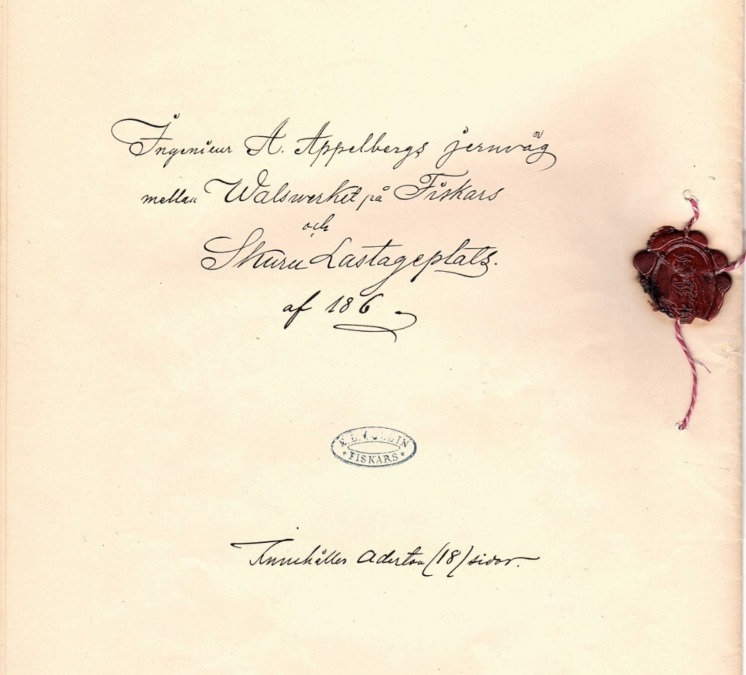 Ingenieur A. Appelbergs jernväg
mellan Walswerket på Fiskars
och
Skuru Lastageplats.
af 186
FISKARS
Innehåller aderton (18) sidor.